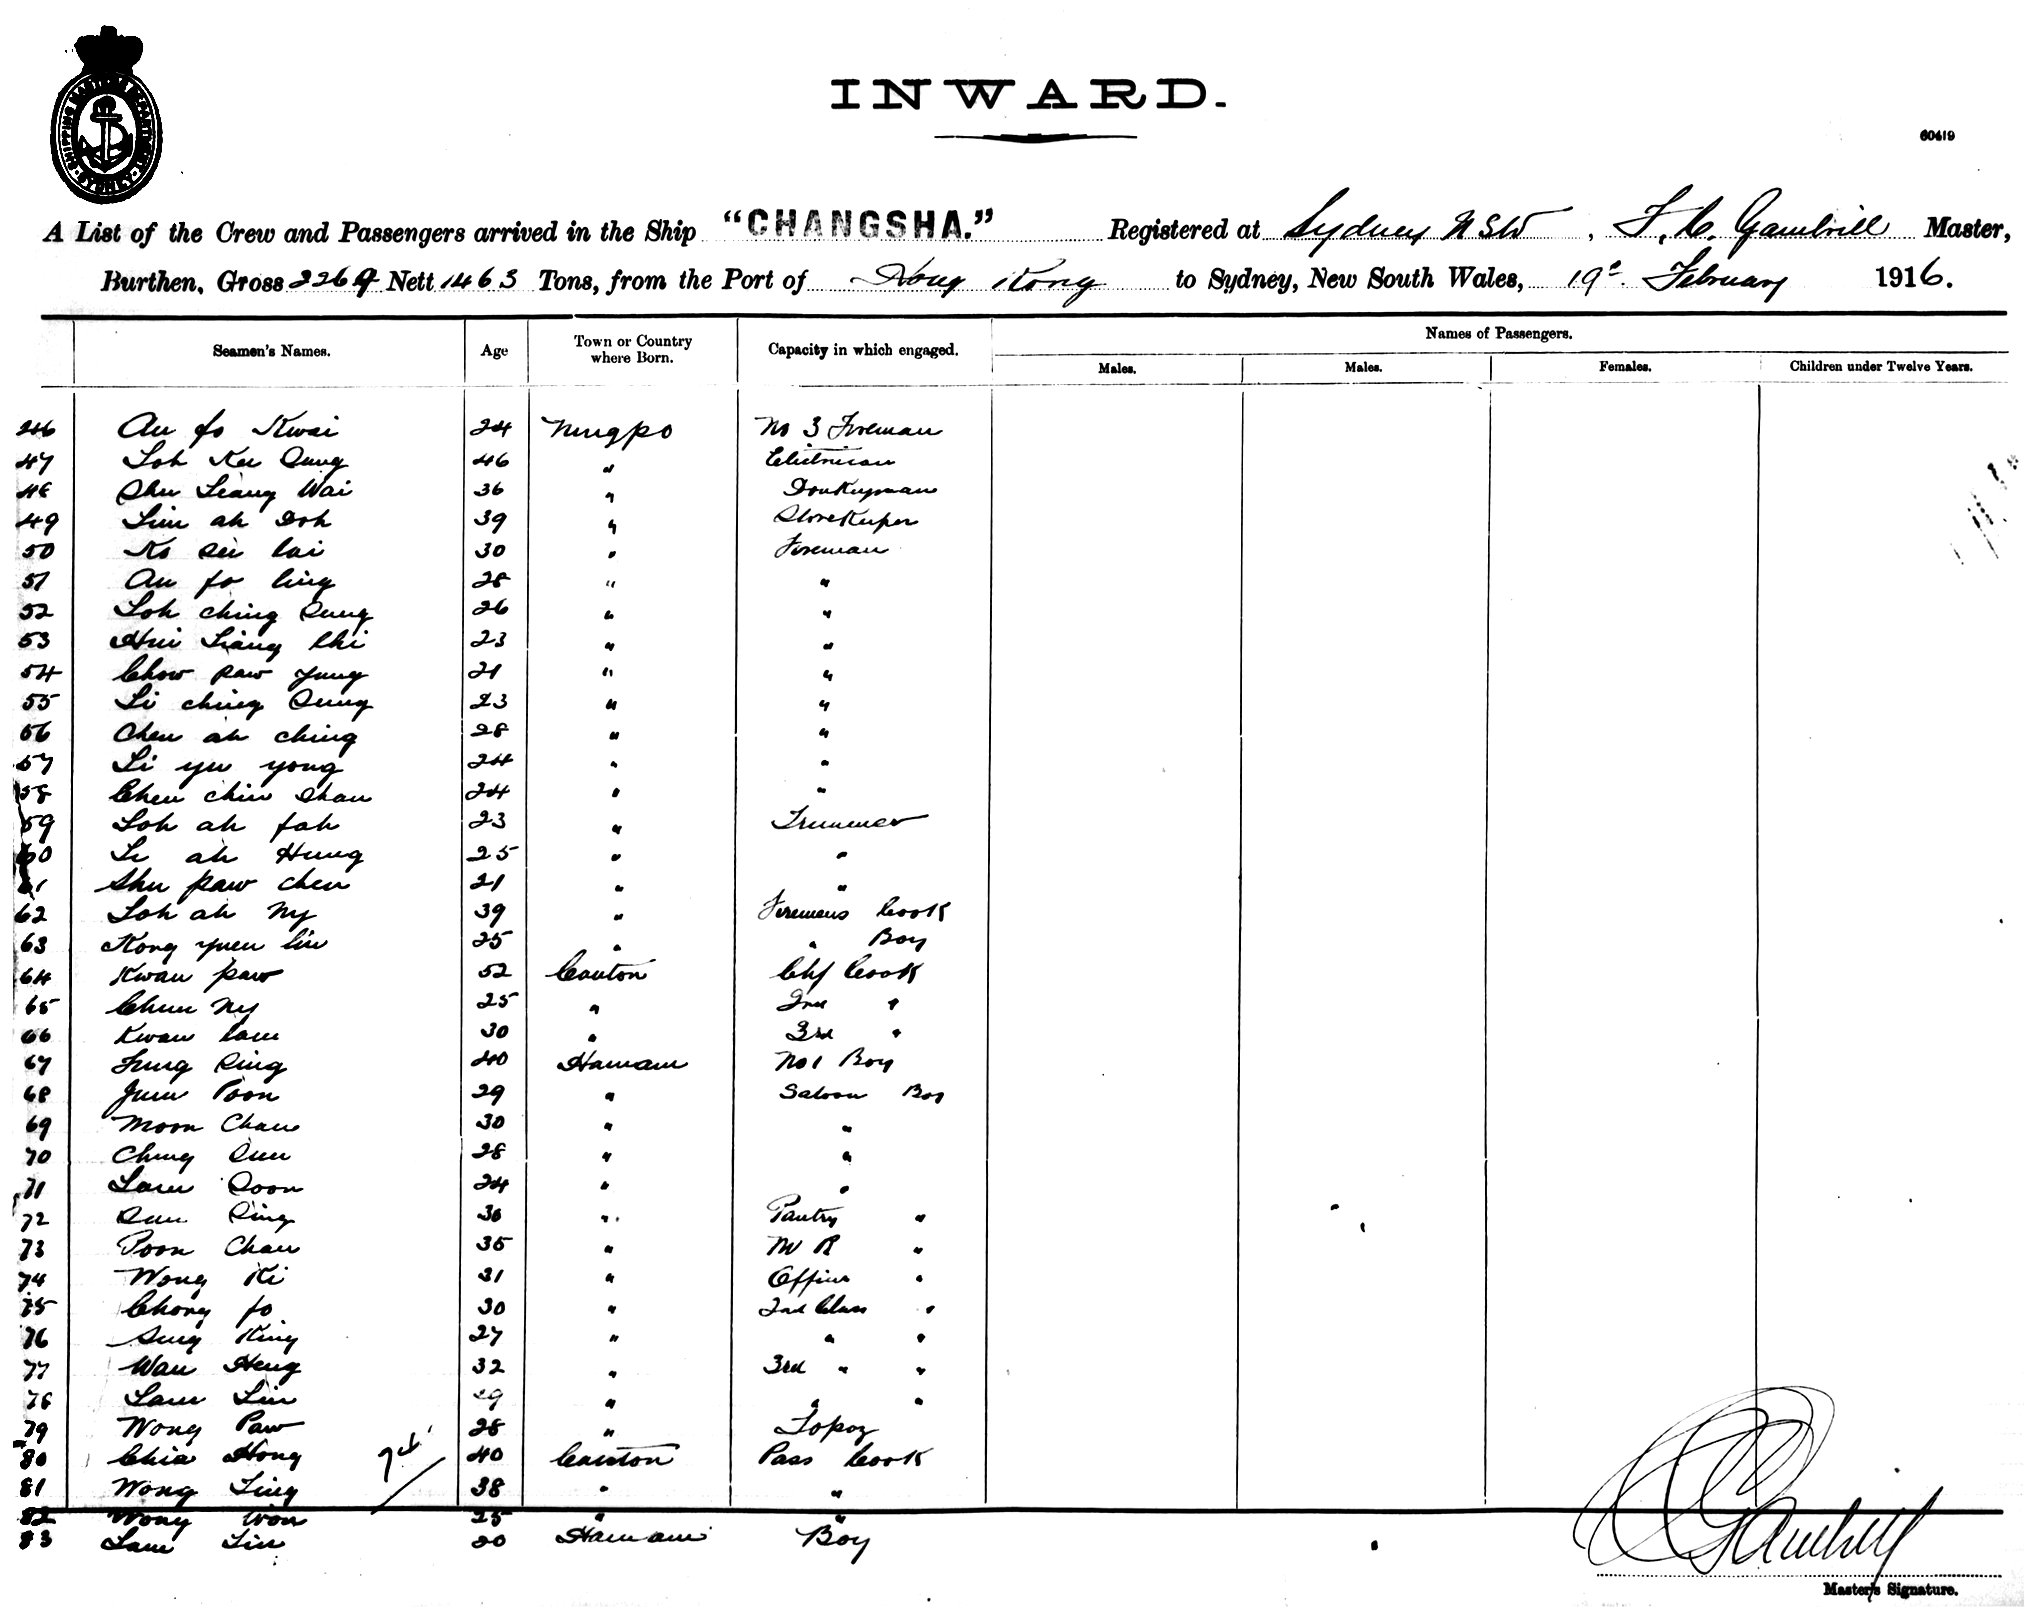 SHIPPING MASTER'S DEPARTMENT · SYDNEY ·
INWARD.
60419
A List of the Crew and Passengers arrived in the Ship "CHANGSHA." Registered at Sydney NSW, F. C. Gambrill Master,
Burthen, Gross 2269 Nett 1463 Tons, from the Port of Hong Kong to Sydney, New South Wales, 19th February 1916.
Seamen's Names. Age Town or Country where Born. Capacity in which engaged. Names of Passengers.
Males. Males. Females. Children under Twelve Years.
46 Au fo Kwai 24 Ningpo No 3 Fireman
47 Loh Kee Sung 46 " Electrician
48 Shu Leang Wai 36 " Donkeyman
49 Lim ah Doh 39 " Storekeeper
50 Ko See lai 30 " Fireman
51 Au fo ling 28 " "
52 Loh ching Sung 26 " "
53 Hui Liang Chi 23 " "
54 Chow paw yung 21 " "
55 Li ching Sung 23 " "
56 Chen ah ching 28 " "
57 Li yu yong 24 " "
58 Chen chin Shan 24 " "
59 Loh ah fah 23 " Trimmer
60 Li ah Hung 25 " "
61 Shu paw chen 21 " "
62 Loh ah Ny 39 " Firemens Cook
63 Kong yuen liu 25 " " Boy
64 Kwan paw 52 Canton Chf Cook
65 Chun Ny 25 " 2nd "
66 Kwan lam 30 " 3rd "
67 Fung Sing 40 Hainam No 1 Boy
68 Jum Poon 29 " Saloon Boy
69 Moon Chan 30 " "
70 Ching Sun 28 " "
71 Lam Soon 24 " "
72 Sun Sing 36 " Pantry "
73 Poon Chan 35 " M R "
74 Wong Ki 31 " Office "
75 Chong fo 30 " 2nd Class "
76 Sung King 27 " " "
77 Wan Heng 32 " 3rd " "
78 Lam Lin 29 " " "
79 Wong Paw 28 " Topaz
80 Chia Hong 40 Canton Pass Cook
81 Wong Ling 38 " "
82 Wong Won 25 " "
83 Lam Lin 20 Hainam Boy
Gambrill
Master's Signature.